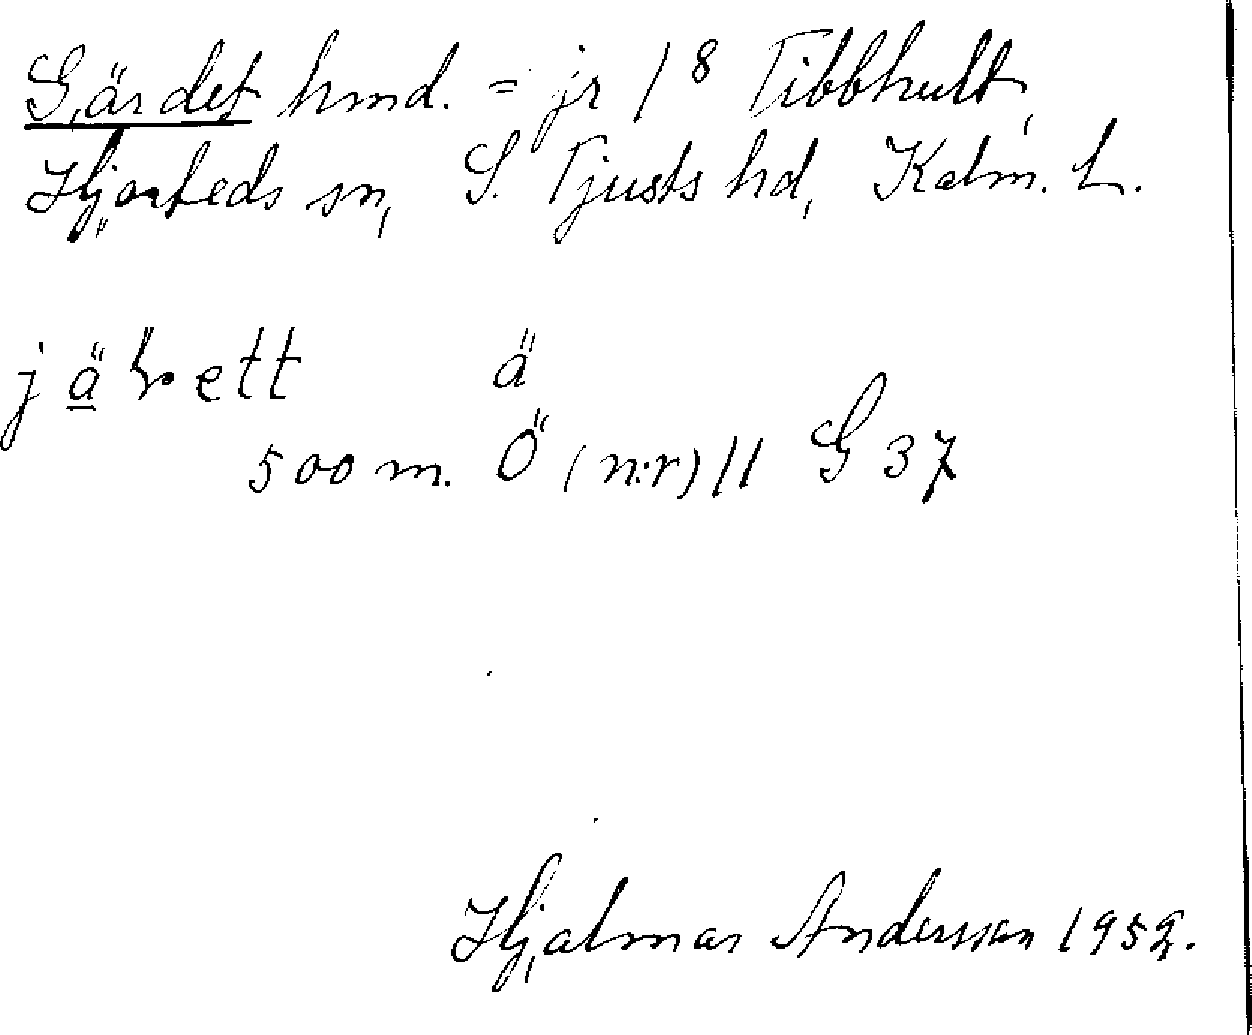 Gärdet hmd. = jr 1⁸ Tibbhult,
Hjorteds sn, S. Tjusts hd, Kalm. L.
ä
500 m. Ö (n:r) 11 G 37
Hjalmar Andersson 1952.